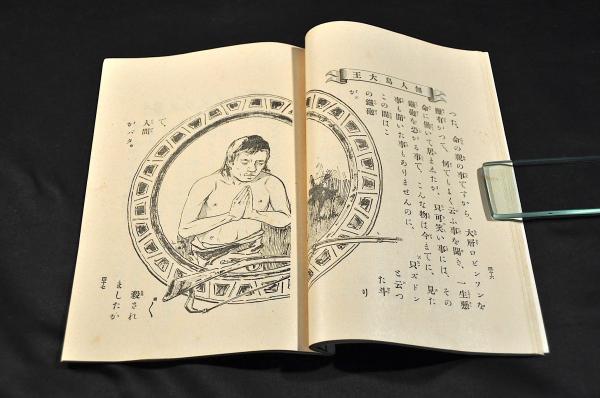 無人島大王
つた、命の親の事ですから、大層ロビンソンを
難有がつて、何でもよく云ふ事を聞き、一生懸
命に働いて居ましたが、見可笑い事には、その
鐵砲を恐がる事で、こんな物は今までに、見た
事も聞いた事もありませんのに、
この間はこ
の鐵砲
が、
見
ズドン
と云つ
た斗
り
四十六
で、
人間
がバタ〳〵
殺され
ましたか
四十七